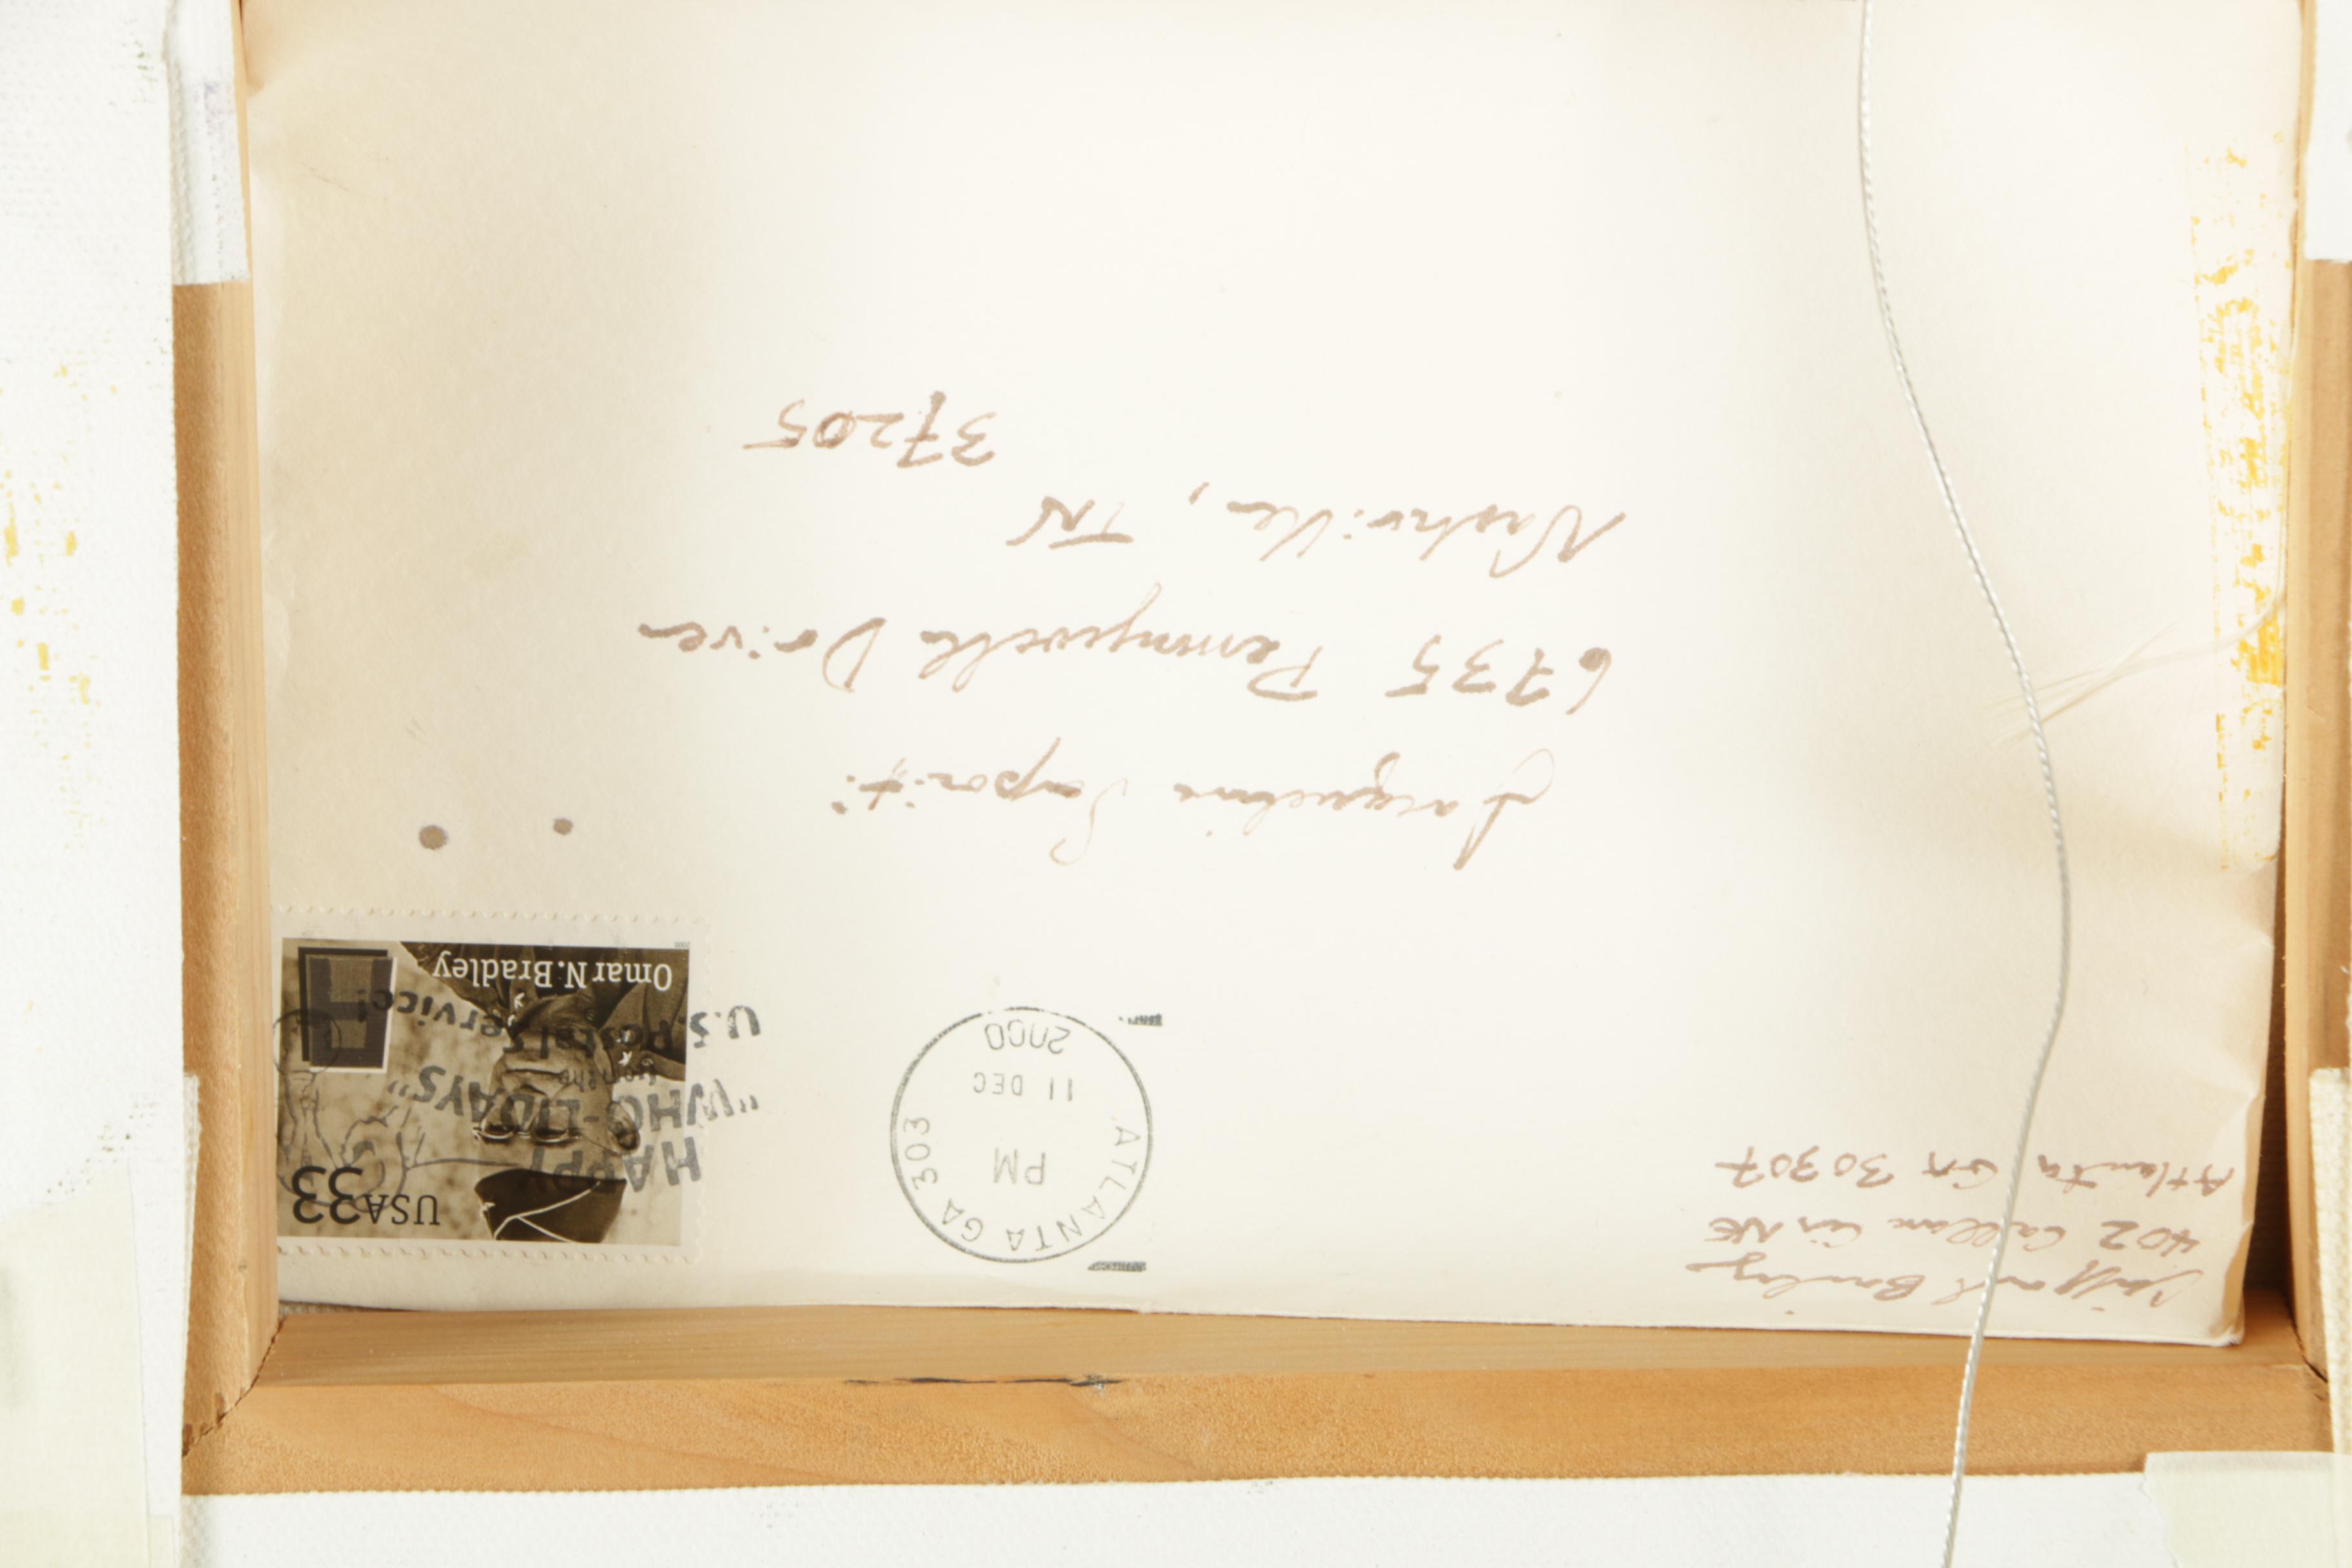 402 Callan Cir NE
Atlanta GA 30307
ATLANTA GA 303
PM
11 DEC
2000
USA 33
HAPPY
"WHO-LIDAYS"
from the
U.S. Postal Service!
Omar N. Bradley
2000
Jacqueline Saporiti
6735 Pennywell Drive
Nashville, TN
37205